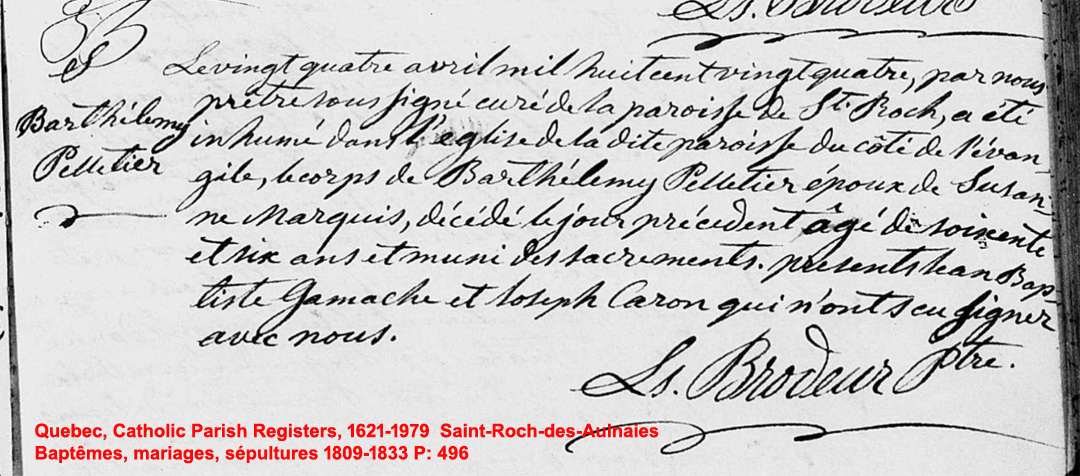 Ls. Brodeur
S
Barthélemy
Pelletier
Le vingt quatre avril mil huit cent vingt quatre, par nous
prêtre sous signé curé de la paroisse de St. Roch, a été
inhumé dans l'église de la dite paroisse du côté de l'évan-
gile, le corps de Barthélemy Pelletier époux de Susan-
ne Marquis, décédé le jour précédent âgé de soixente
et six ans et muni des sacrements. presents Jean Bap-
tiste Gamache et Joseph Caron qui n'ont seu signer
avec nous.
Ls. Brodeur Ptre.
Quebec, Catholic Parish Registers, 1621-1979 Saint-Roch-des-Aulnaies
Baptêmes, mariages, sépultures 1809-1833 P: 496